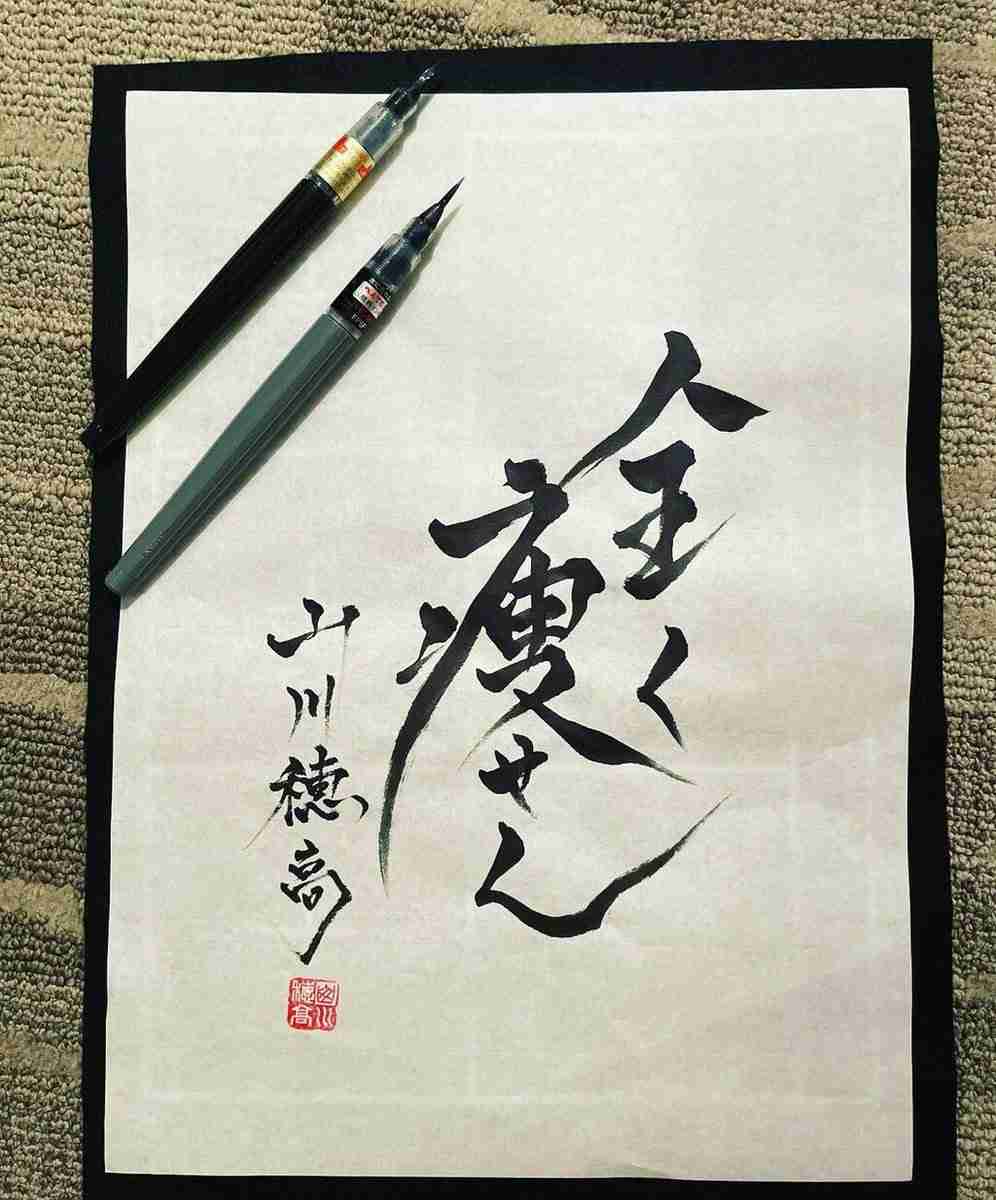 全く
痩せん
山川穂高
山川
穂高